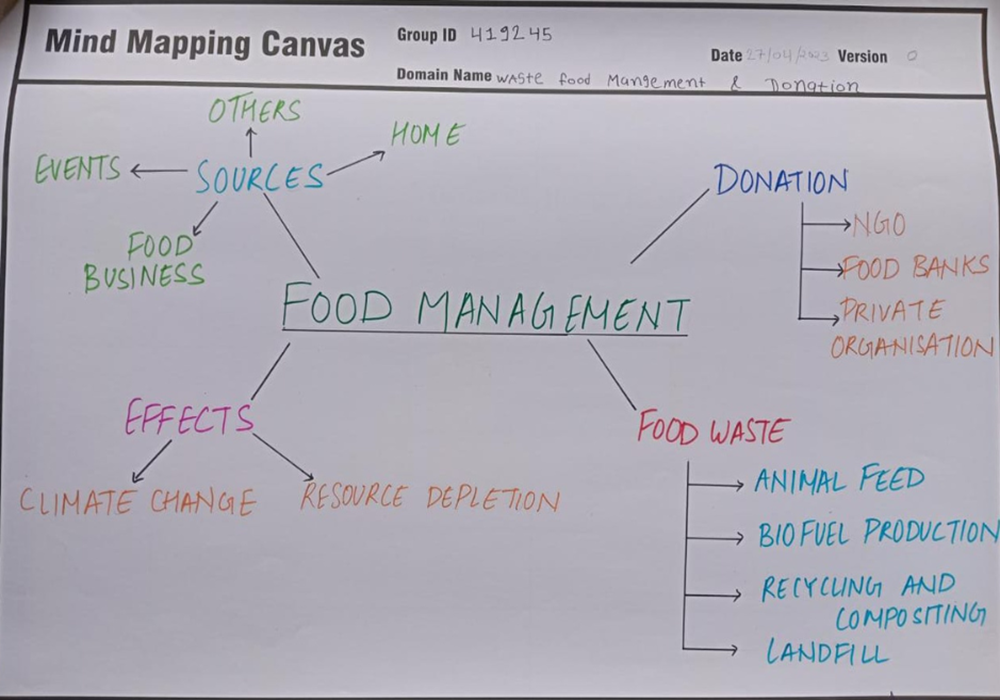 Mind Mapping Canvas
Group ID 419245
Date 27/04/2023 Version 0
Domain Name waste food Mangement & Donation
OTHERS
HOME
EVENTS
SOURCES
FOOD
BUSINESS
DONATION
NGO
FOOD BANKS
PRIVATE
ORGANISATION
FOOD MANAGEMENT
EFFECTS
CLIMATE CHANGE
RESOURCE DEPLETION
FOOD WASTE
ANIMAL FEED
BIOFUEL PRODUCTION
RECYCLING AND
COMPOSITING
LANDFILL